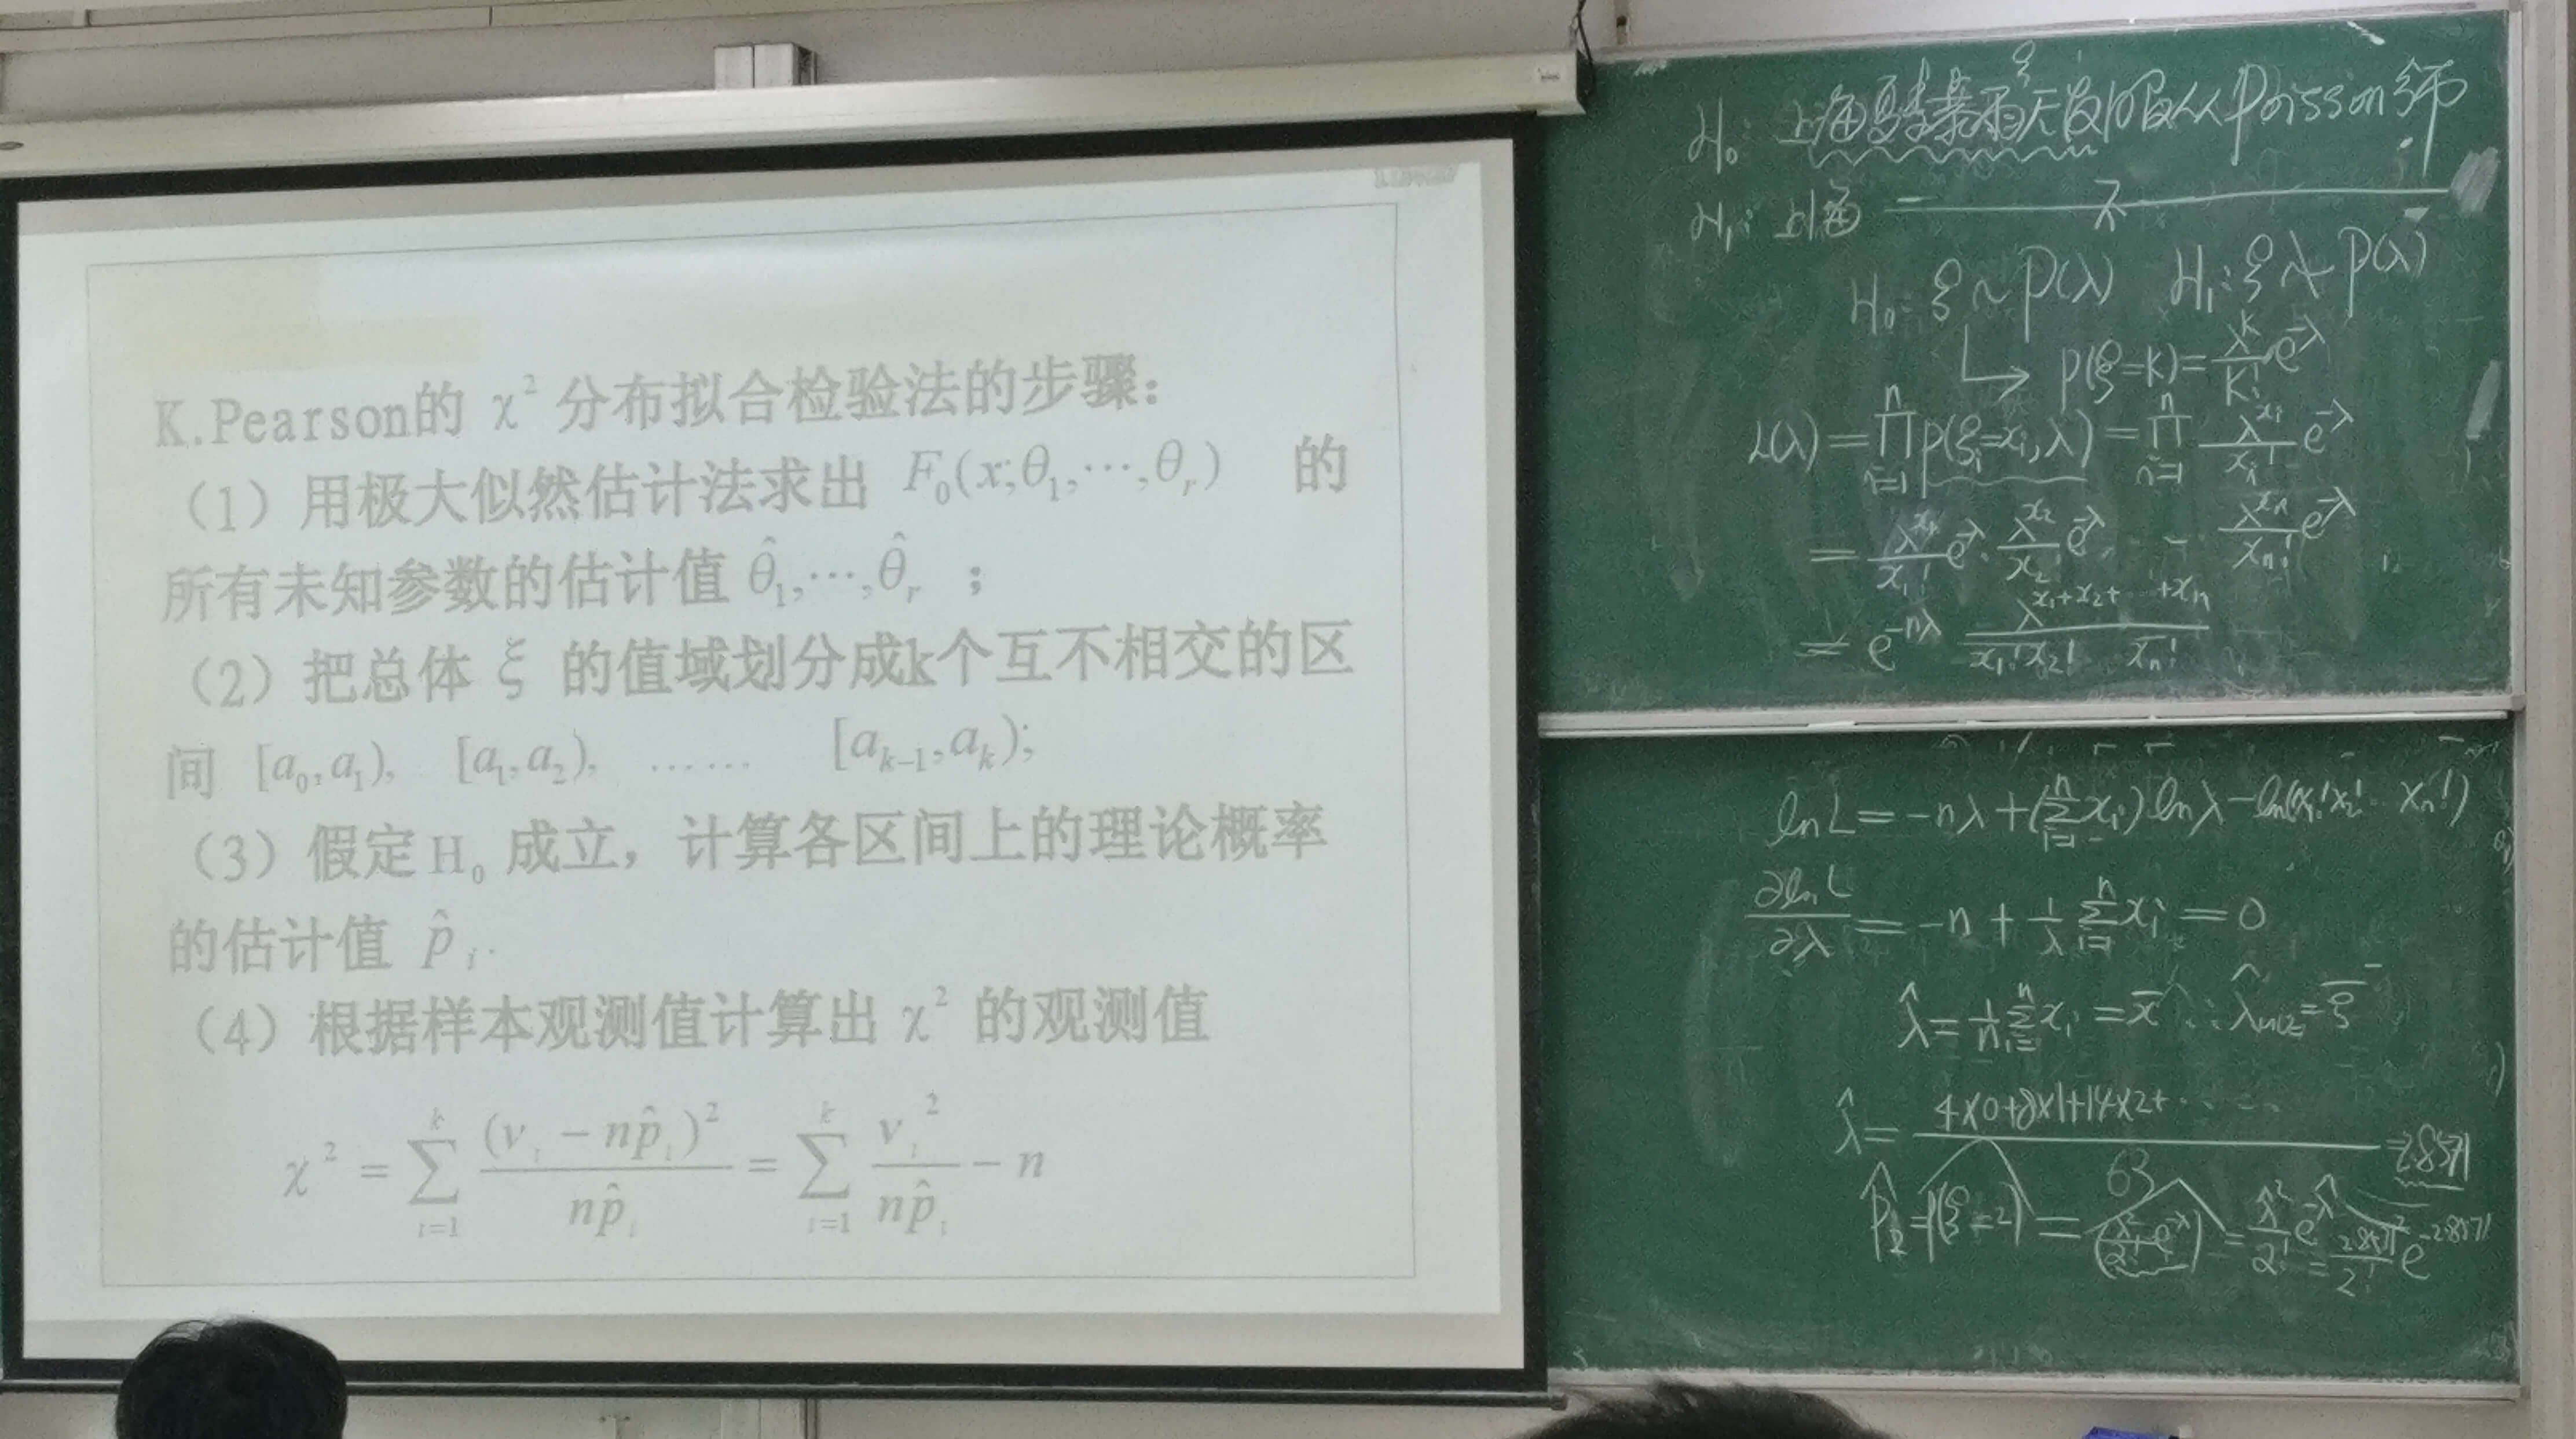 K.Pearson的 χ² 分布拟合检验法的步骤：
（1）用极大似然估计法求出 F₀(x;θ₁,⋯,θᵣ) 的
所有未知参数的估计值 θ̂₁,⋯,θ̂ᵣ ；
（2）把总体 ξ 的值域划分成k个互不相交的区
间 [a₀,a₁), [a₁,a₂), …… [aₖ₋₁,aₖ);
（3）假定H₀ 成立，计算各区间上的理论概率
的估计值 p̂ᵢ.
（4）根据样本观测值计算出 χ² 的观测值
χ² = ∑ᵢ₌₁ᵏ (νᵢ − np̂ᵢ)² / np̂ᵢ = ∑ᵢ₌₁ᵏ νᵢ² / np̂ᵢ − n
H₀: 上海夏季暴雨天数ξ服从Poisson分布
H₁: 上海 — 不 —
H₀: ξ ~ P(λ) H₁: ξ ≁ P(λ)
P(ξ=K) = λᴷ/K! e^-λ
L(λ) = ∏ᵢ₌₁ⁿ P(ξᵢ=xᵢ,λ) = ∏ᵢ₌₁ⁿ λ^xᵢ/xᵢ! e^-λ
= λ^x₁/x₁! e^-λ · λ^x₂/x₂! e^-λ ⋯ λ^xₙ/xₙ! e^-λ
= e^-nλ λ^(x₁+x₂+⋯+xₙ) / x₁!x₂!⋯xₙ!
ln L = -nλ + (∑ᵢ₌₁ⁿ xᵢ) ln λ - ln(x₁!x₂!⋯xₙ!)
∂ln L/∂λ = -n + 1/λ ∑ᵢ₌₁ⁿ xᵢ = 0
λ̂ = 1/n ∑ᵢ₌₁ⁿ xᵢ = x̄ ∴ λ̂ = ξ̄
λ̂ = (4×0+8×1+14×2+⋯⋯)/63 = 2.8571
p̂₂ = P̂(ξ=2) = (λ²/2! e^-λ)^ = λ̂²/2! e^-λ̂ = 2.8571²/2! e^-2.8571